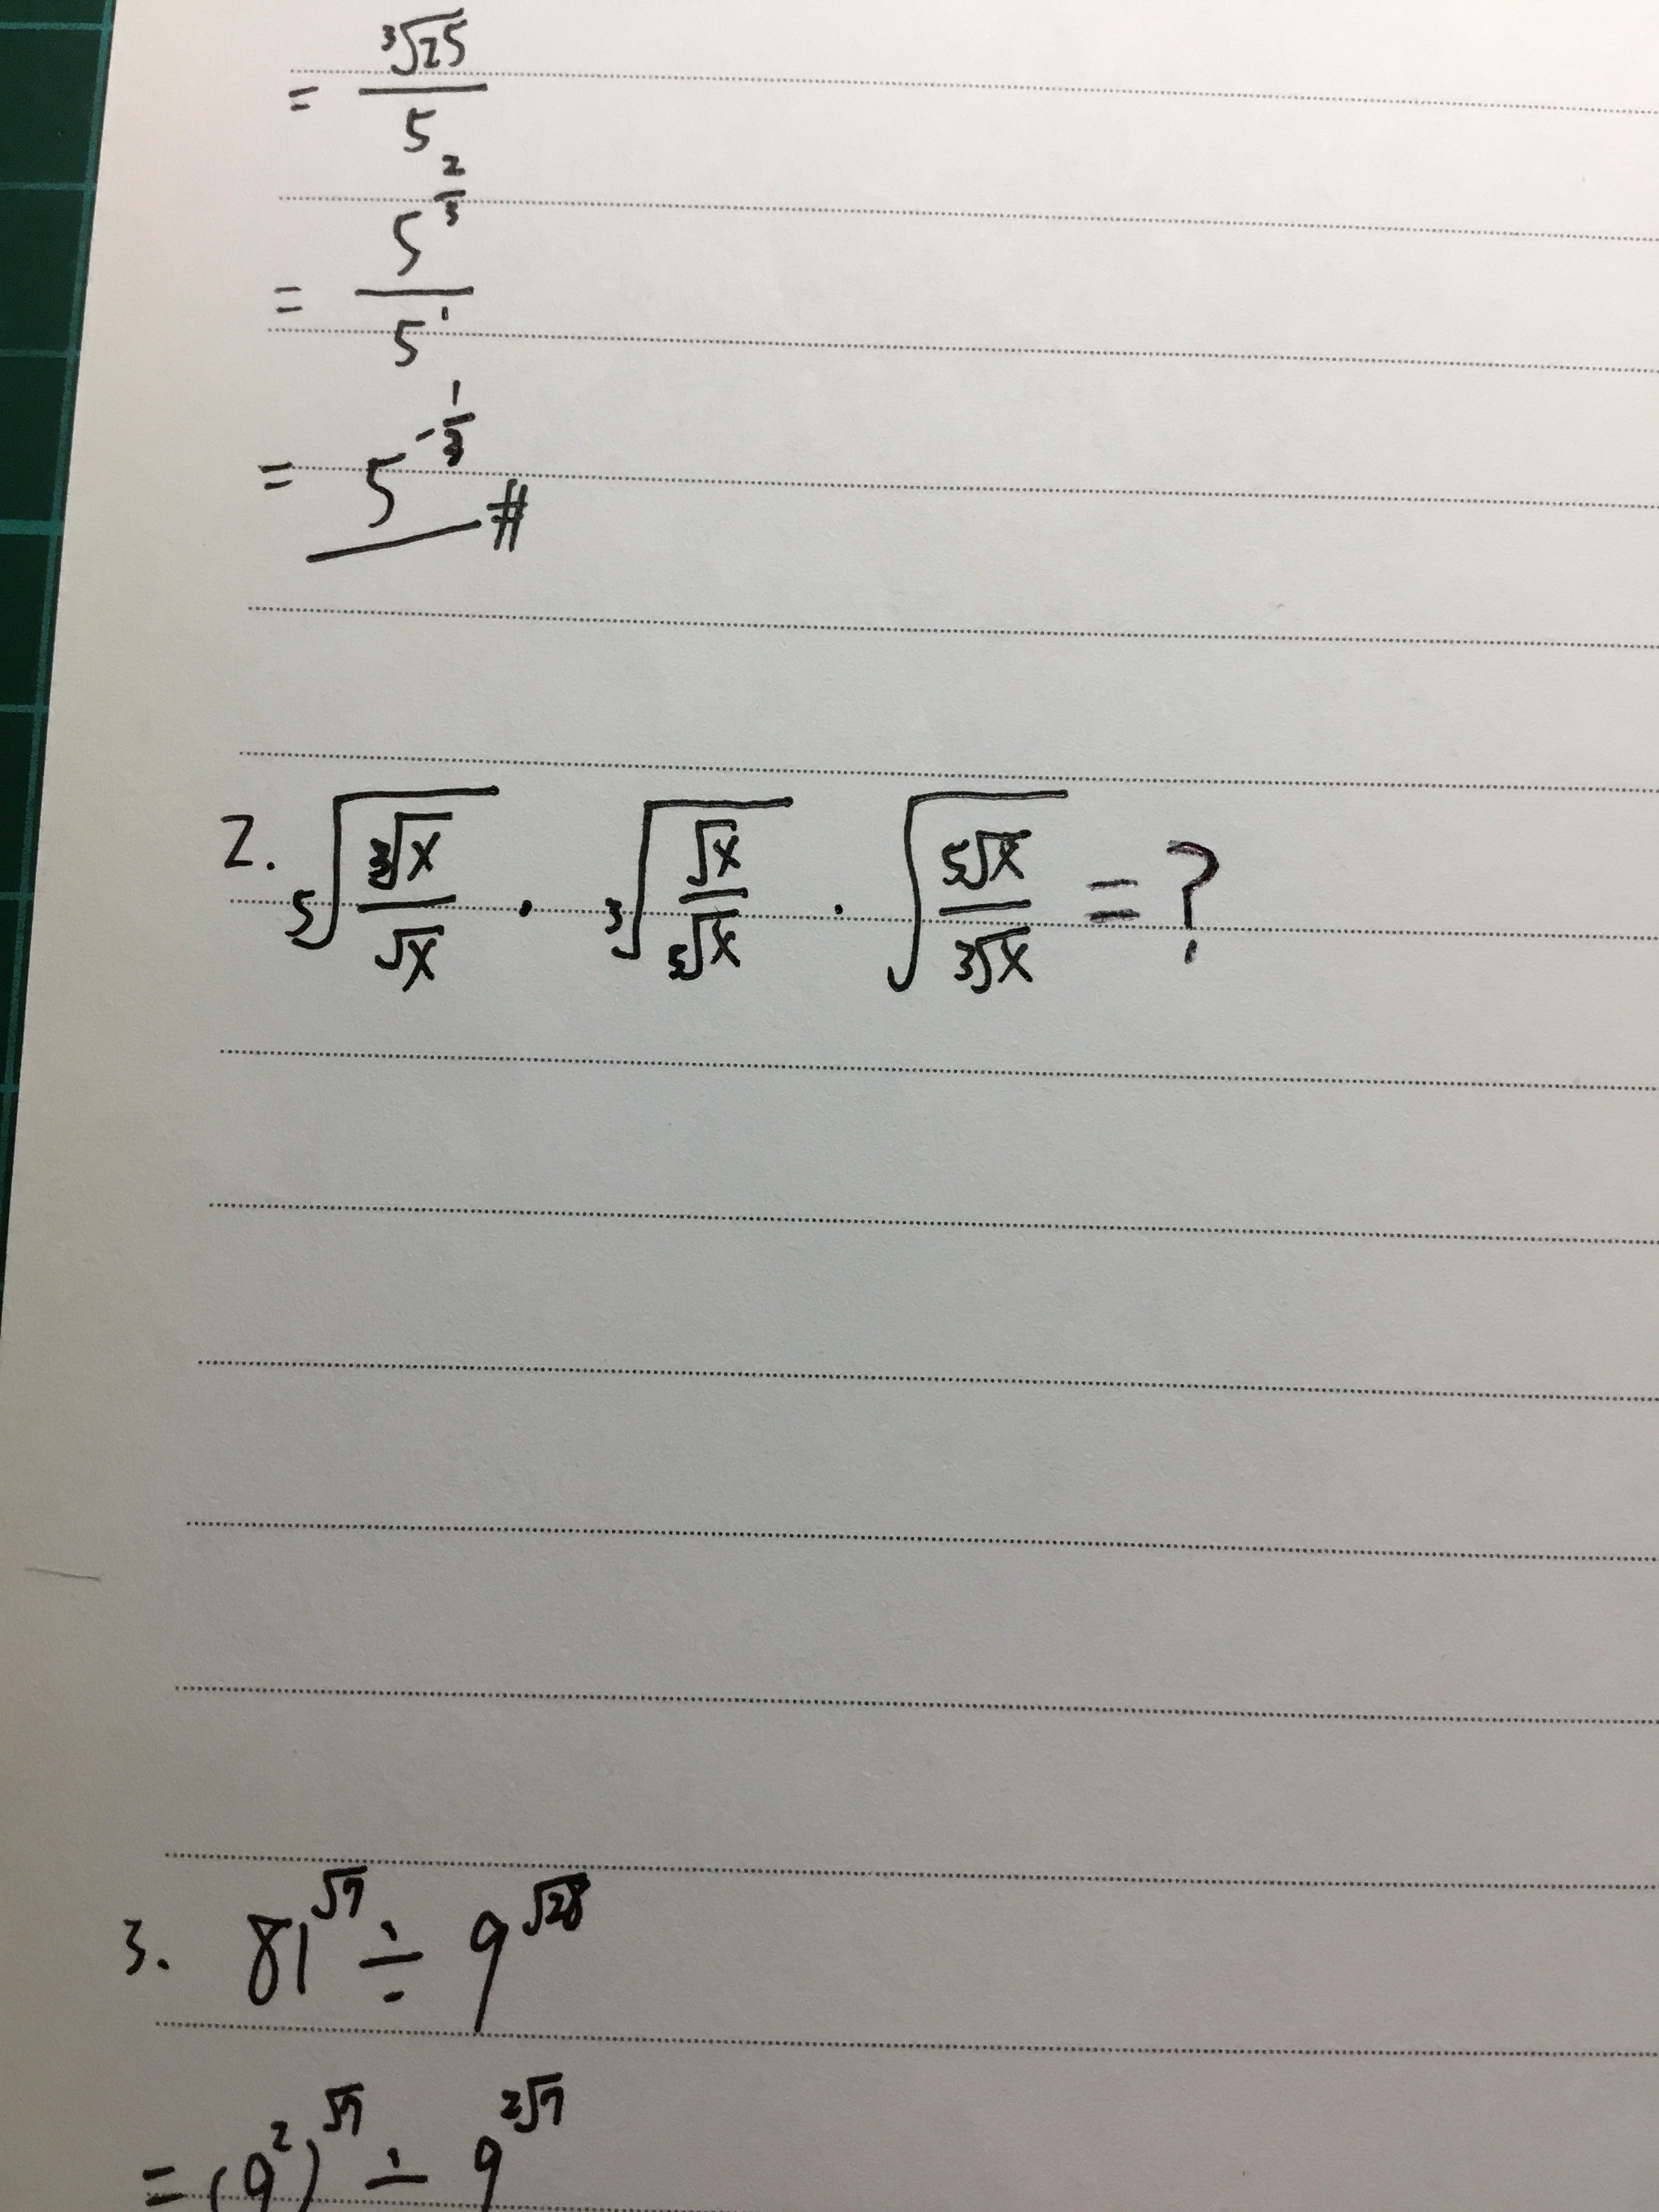 = ³√25 / 5
= 5^(2/3) / 5^1
= 5^(-1/3) #
2. ⁵√(³√x / √x) · ³√(√x / ⁵√x) · √(⁵√x / ³√x) = ?
3. 81^√7 ÷ 9^√28
= (9^2)^√7 ÷ 9^2√7